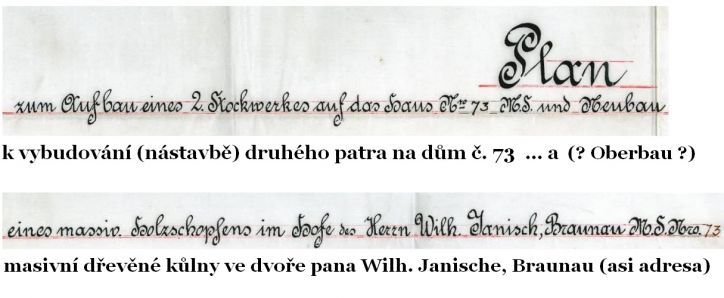 Plan
zum Aufbau eines 2. Stockwerkes auf das Haus Nro 73 N.S. und Neubau
k vybudování (nástavbě) druhého patra na dům č. 73 ... a (? Oberbau ?)
eines massiv. Holzschopfens im Hofe des Herrn Wilh. Janisch, Braunau N.S. Nro. 73
masivní dřevěné kůlny ve dvoře pana Wilh. Janische, Braunau (asi adresa)